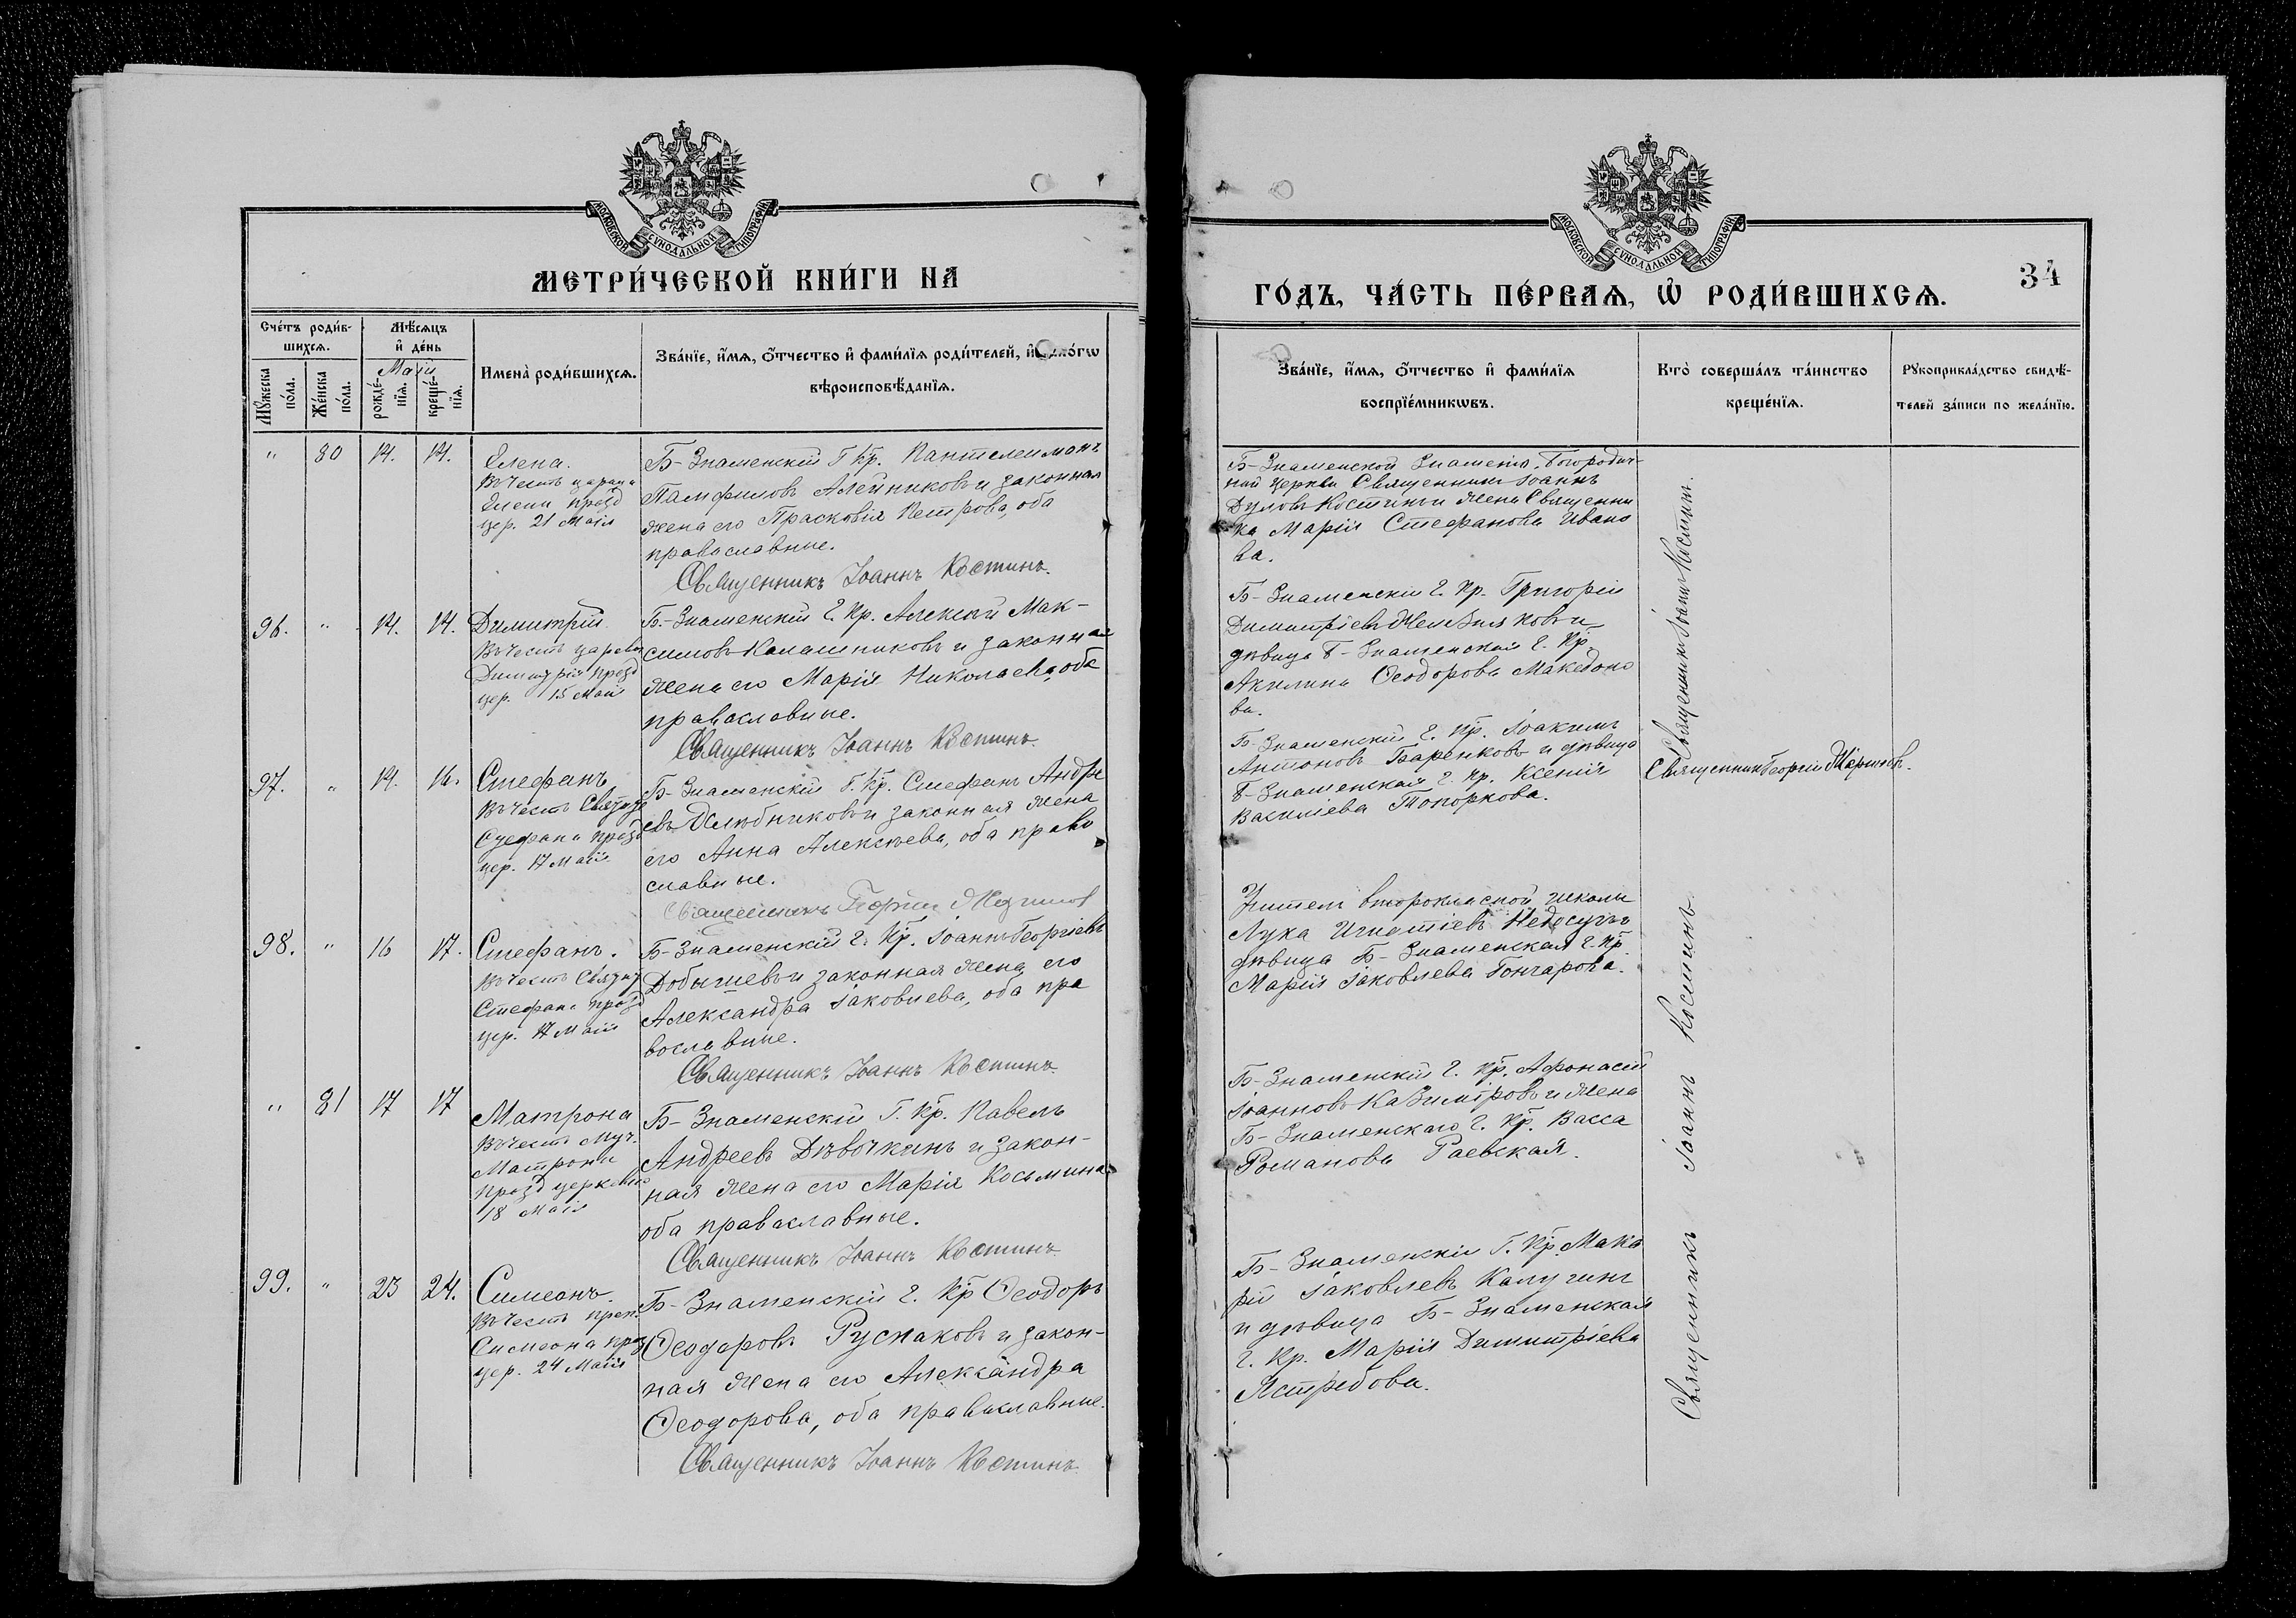 МОСКОВСКОЙ СУНОДАЛЬНОЙ ТИПОГРАФІИ
МЕТРИ́ЧЕСКОЙ КНИ́ГИ НА
Сче́тъ роди́в-
шихсѧ.
Мѣ́сѧцъ
и҆ де́нь
Маій
Мꙋ́жеска
по́ла.
Же́нска
по́ла.
рожде́-
нїѧ.
креще́-
нїѧ.
Имена̀ роди́вшихсѧ.
Зва́нїе, и҆́мѧ, ѻ҆́тчество и҆ фами́лїѧ роди́телей, и҆
вѣроисповѣ́данїѧ.
" 80 14. 14.
Елена.
Въ честь
Елены празд
цер. 21 Маія
Б-Знаменскій Г. Кр. Пантелеимонъ
Памфиловъ Алейниковъ и законная
жена его Прасковія Петрова, оба
православные.
Священникъ Іоаннъ Костинъ.
96. " 14. 14.
Димитрій
Въ честь царев
Димитрія празд
цер. 15 Маія
Б-Знаменскій Г. Кр. Алексѣй Мак-
симовъ Калашниковъ и законная
жена его Марія Николаева, оба
православные.
Священникъ Іоаннъ Костинъ.
97. " 14. 16.
Стефанъ
Въ честь Святит
Стефана празд
цер. 17 Маія
Б-Знаменскій Г. Кр. Стефанъ Андре
евъ Хлѣбниковъ и законная жена
его Анна Алексѣева, оба право
славные.
Священникъ Георгій
98. " 16 17.
Стефанъ.
Въ честь Святит
Стефана празд
цер. 17 Маія
Б-Знаменскій Г. Кр. Іоаннъ Георгіевъ
Добышевъ и законная жена его
Александра Іаковлева, оба пра
вославные.
Священникъ Іоаннъ Костинъ.
" 81 17 17
Матрона
Въ честь Муч.
Матроны
празд церковью
18 Маія
Б-Знаменскій Г. Кр. Павелъ
Андреевъ Дѣвочкинъ и закон-
ная жена его Марія Косьмина
оба православные.
Священникъ Іоаннъ Костинъ
99. " 23 24.
Симеонъ.
Въ честь преп.
Симеона праз
цер. 24 Маія
Б-Знаменскій Г. Кр Ѳеодоръ
Ѳеодоровъ Руснаковъ и закон-
ная жена его Александра
Ѳеодорова, оба православные.
Священникъ Іоаннъ Костинъ
МОСКОВСКОЙ СУНОДАЛЬНОЙ ТИПОГРАФІИ
34
ГО́ДЪ, ЧА́СТЬ ПЕ́РВАѦ, Ѡ҆ РОДИ́ВШИХСѦ.
Зва́нїе, и҆́мѧ, ѻ҆́тчество и҆ фами́лїѧ
воспрїе́мникѡвъ.
Кто̀ соверша́лъ та́инство
креще́нїѧ.
Рꙋкоприкла́дство свидѣ́-
телей за́писи по жела́нїю.
Б-Знаменской Знаменія Богородич-
ной церкви Священникъ Іоаннъ
Костинъ и жена Священни
ка Марія Стефанова Ивано
ва.
Б-Знаменскій Г. Кр. Григорій
Димитріевъ и
дѣвица Б-Знаменская Г. Кр.
Акилина Ѳеодорова Македоно
ва.
Б-Знаменскій Г. Кр. Іоакимъ
Антоновъ Баренковъ и дѣвица
Б-Знаменская Г. Кр. Ксенія
Василіева Топоркова.
Учитель второклассной школы
Лука Игнатіевъ
дѣвица Б-Знаменская Г. Кр.
Марія Іаковлева Гончарова.
Б-Знаменскій Г. Кр. Афонасій
Іоанновъ Казиміровъ и жена
Б-Знаменскаго Г. Кр. Васса
Романова Раевская.
Б-Знаменскій Г. Кр. Мака
рій Іаковлевъ Калугинъ
и дѣвица Б-Знаменская
Г. Кр. Марія Димитріева
Ястребова.
Священникъ Іоаннъ Костинъ.
Священникъ Георгій
Священникъ Іоаннъ Костинъ.